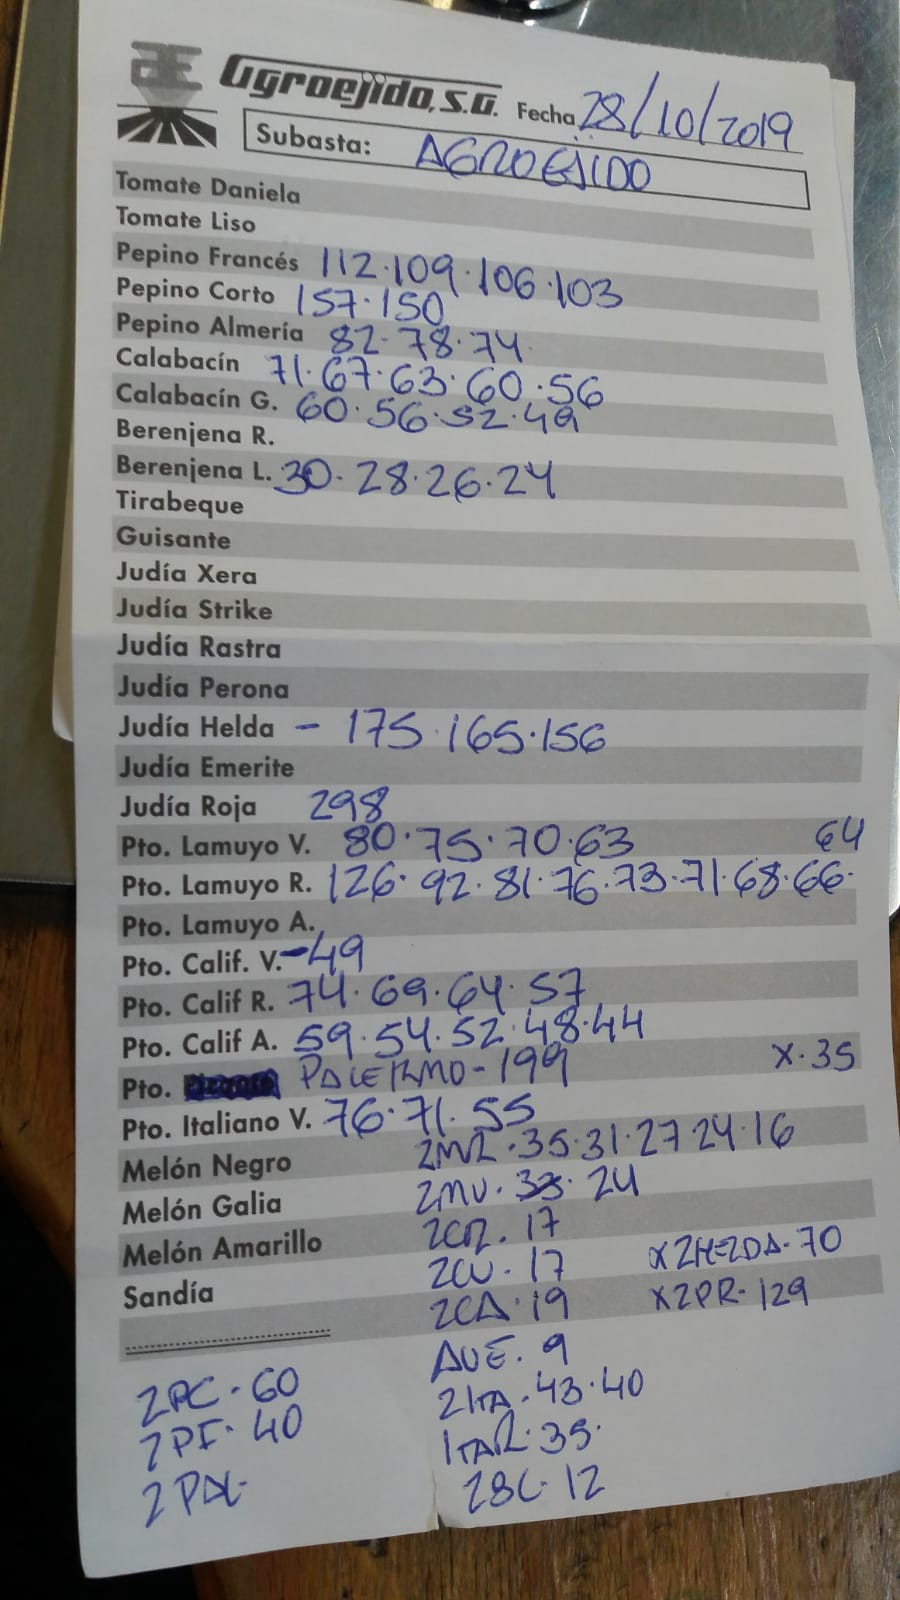 Agroejido, S.A. Fecha 28/10/2019
Subasta: AGROEJIDO
Tomate Daniela
Tomate Liso
Pepino Francés 112·109·106·103
Pepino Corto 157·150
Pepino Almería 82·78·74·
Calabacín 71·67·63·60·56
Calabacín G. 60·56·52·49
Berenjena R.
Berenjena L. 30·28·26·24
Tirabeque
Guisante
Judía Xera
Judía Strike
Judía Rastra
Judía Perona
Judía Helda - 175·165·156
Judía Emerite
Judía Roja 298
Pto. Lamuyo V. 80·75·70·63 64
Pto. Lamuyo R. 126·92·81·76·73·71·68·66·
Pto. Lamuyo A.
Pto. Calif. V. -49
Pto. Calif R. 74·69·64·57
Pto. Calif A. 59·54·52·48·44
Pto. PALERMO - 199 X·35
Pto. Italiano V. 76·71·55
Melón Negro 2MR·35·31·27·24·16
Melón Galia 2MV· 24
Melón Amarillo 2CR·17
2CV·17 X2HELDA·70
Sandía 2CA·19 X2PR·129
AVE·9
2PC·60 2ITA·43·40
2PF·40 ITAR·35·
2PAL· 2BL·12